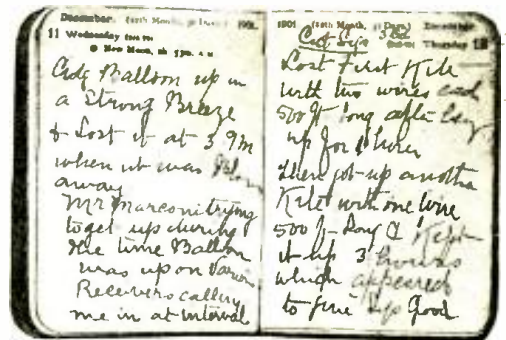 December. (12th Month, 31 Days) 1901.
11 Wednesday
New Moon, 2h 53m. A.M
Got Balloon up in
a Strong Breeze
& Lost it at 3 PM
when it was
away
Mr Marconi trying
to get up during
the time Balloon
was up on Various
Receivers calling
me in at interval
1901 (12th Month, 31 Days) December
Thursday 12
Got Sigs 3
Lost First Kite
with two wires each
500 ft long after
up for 1 hour
then got up another
Kite with one wire
500 ft Long & Kept
it up 3 hours
which appeared
to give Sigs Good